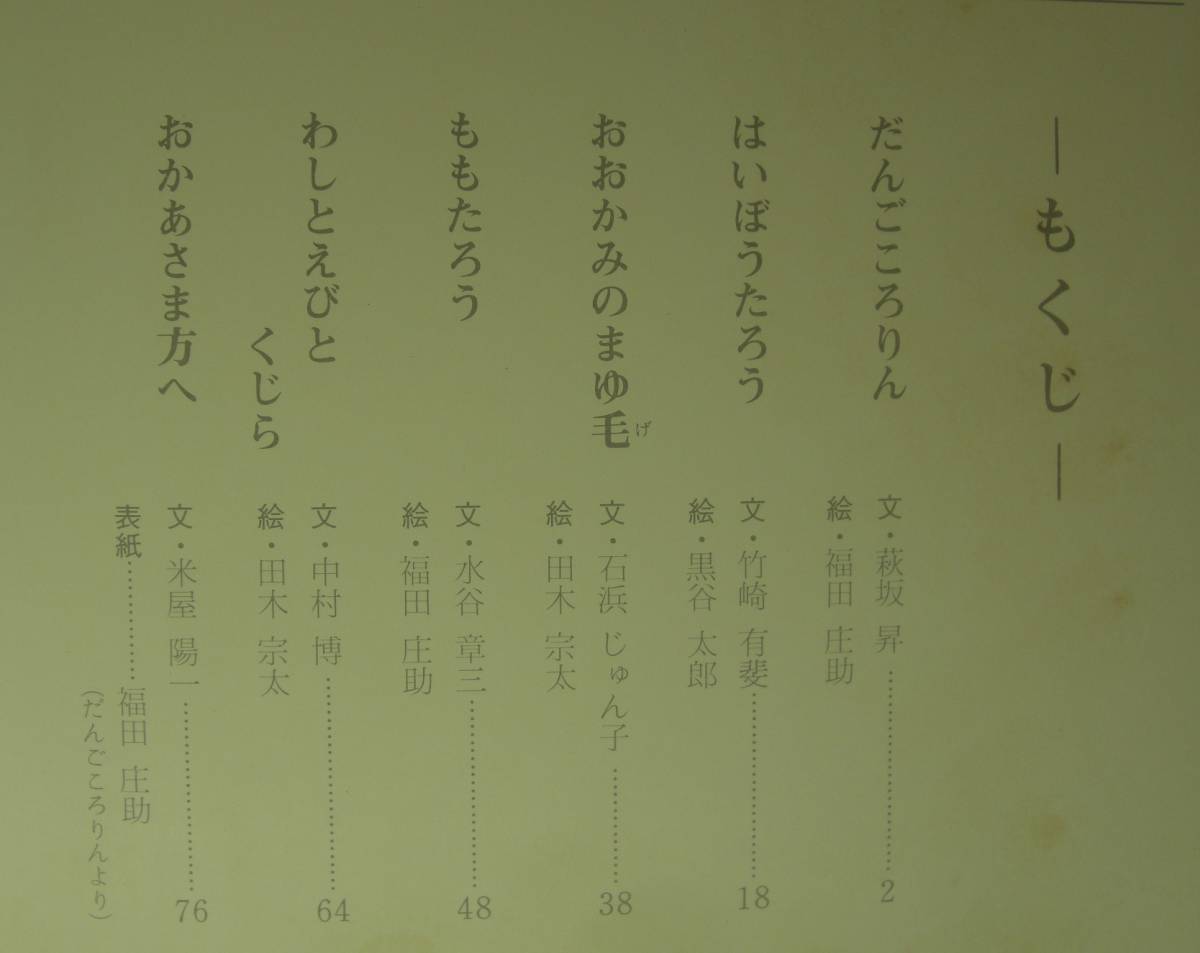 ―もくじ―
だんごころりん
文・萩坂 昇……………………2
絵・福田 庄助
はいぼうたろう
文・竹崎 有斐……………………18
絵・黒谷 太郎
おおかみのまゆ毛
げ
文・石浜 じゅん子……………38
絵・田木 宗太
ももたろう
文・水谷 章三……………………48
絵・福田 庄助
わしとえびと
くじら
文・中村 博……………………64
絵・田木 宗太
おかあさま方へ
文・米屋 陽一……………………76
表紙……………福田 庄助
(だんごころりんより)